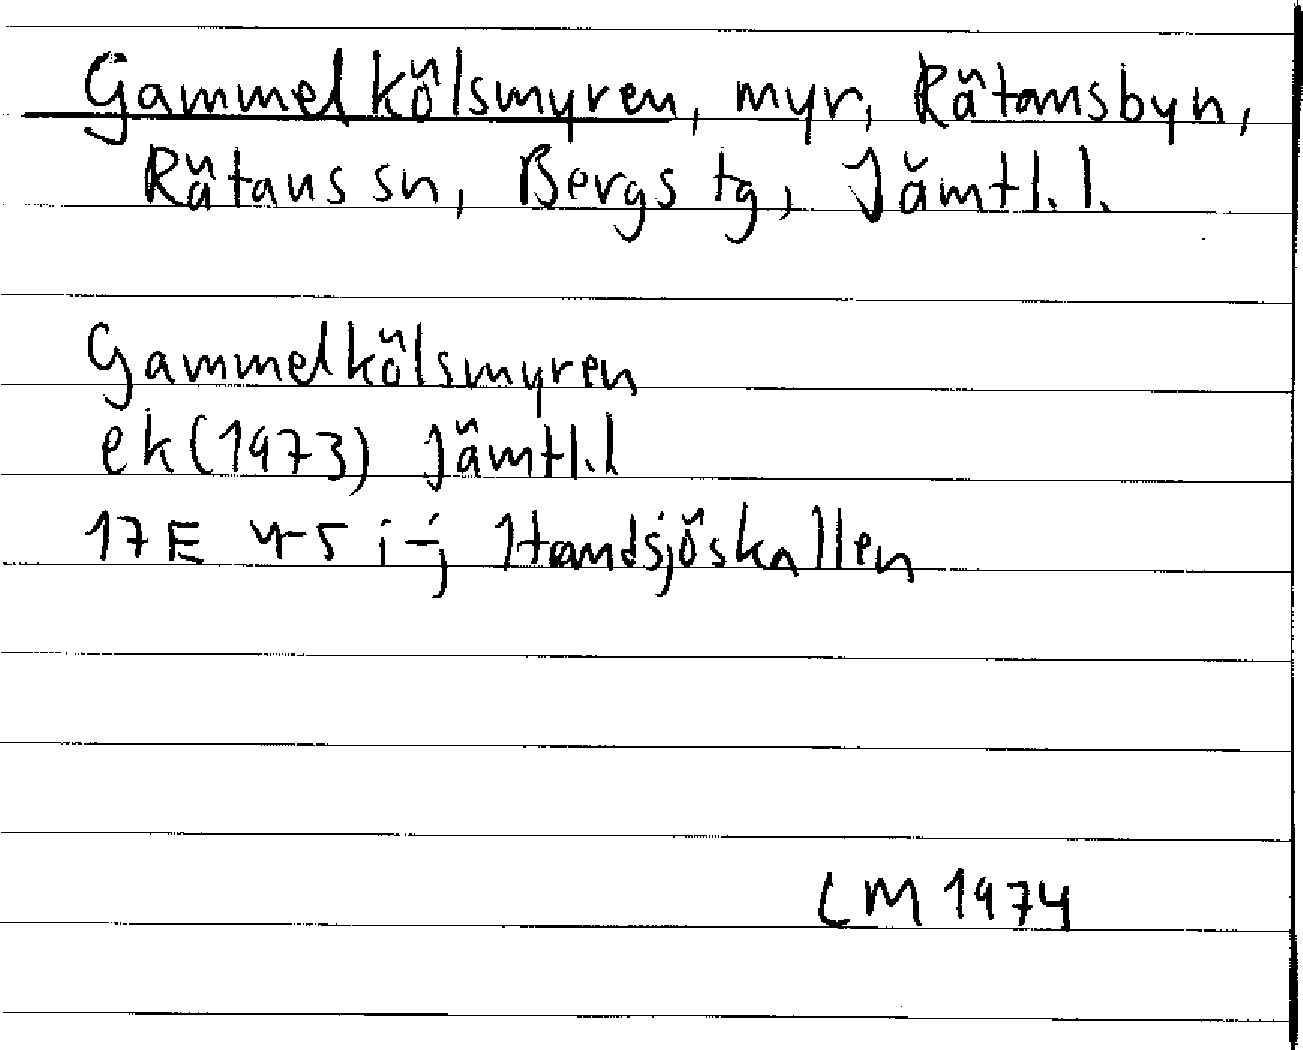 Gammelkölsmyren, myr, Rätansbyn,
Rätans sn, Bergs tg, Jämtl. l.
Gammelkölsmyren
ek (1973) Jämtl. l
17E 4-5 i-j Handsjöskallen
LM 1974